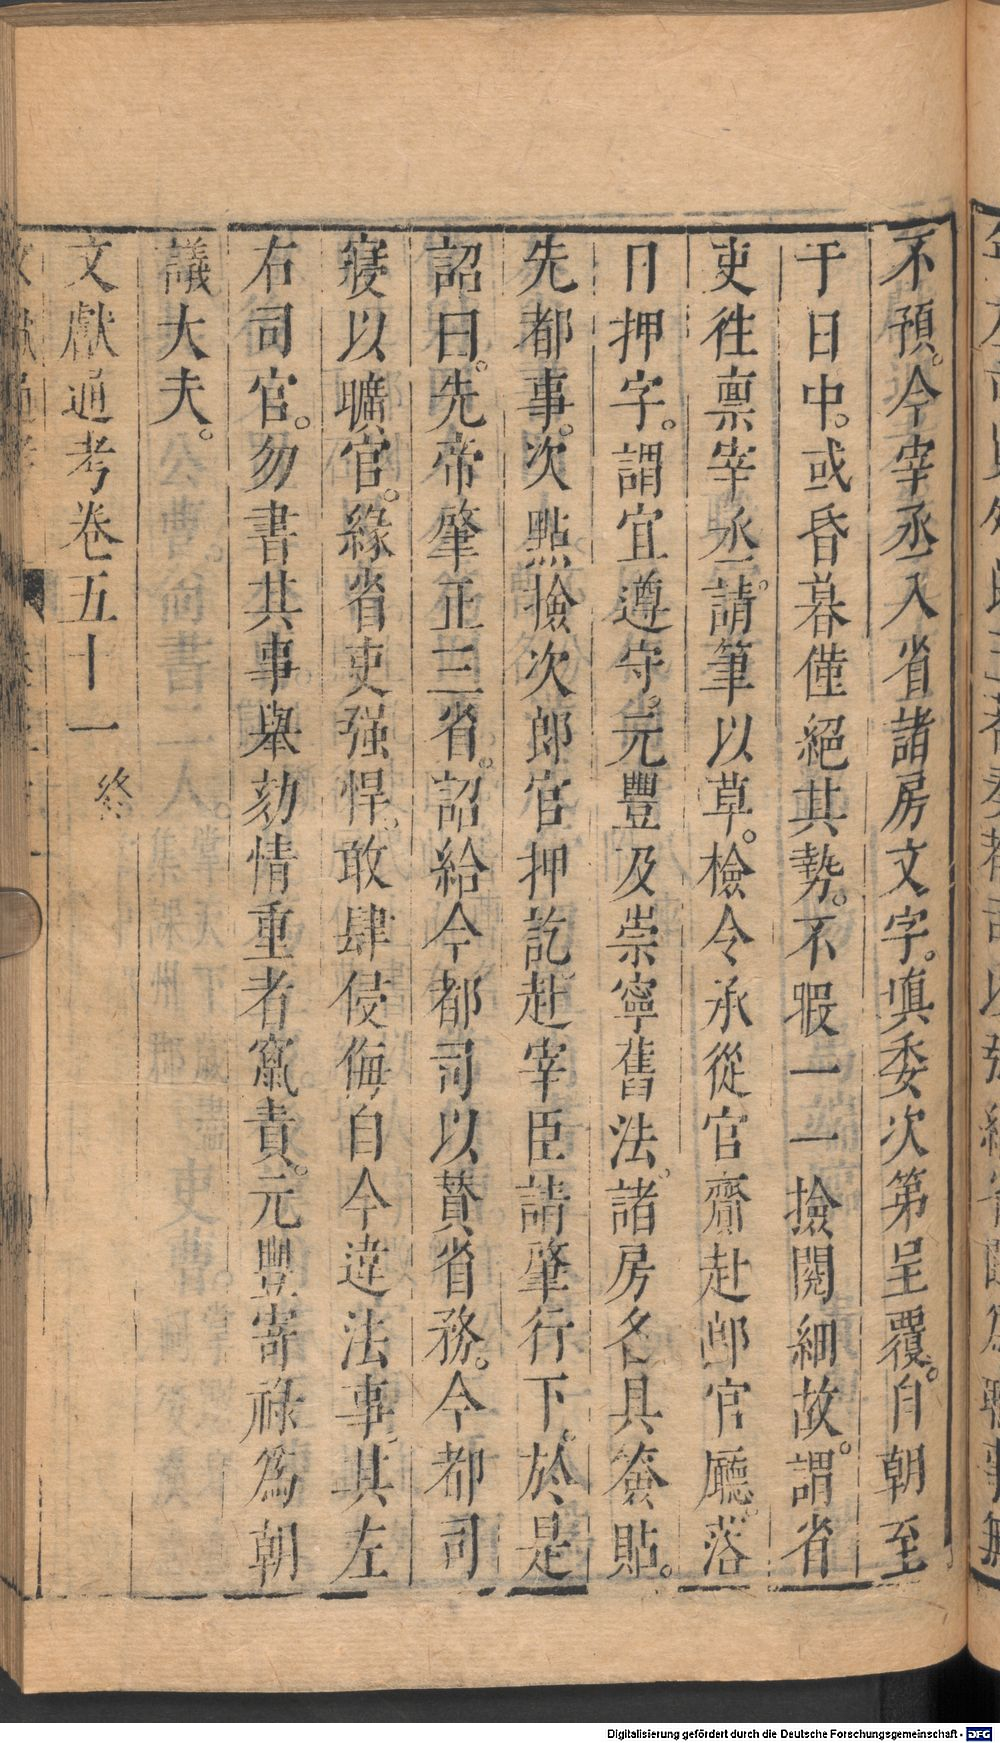 不預。今宰丞入省諸房文字。填委次第呈覆。自朝至
于日中。或昏暮僅絕其勢。不暇一一撿閱細故。謂省
吏徃禀宰丞。請筆以草。檢令承從官齋赴郎官廳。落
日押字。謂宜遵守。元豐及崇寧舊法。諸房各具簽貼。
先都事。次點撿次郎官押訖赴宰臣請肇行下。於是
詔曰。先帝肇正三省。詔給今都司以賛省務。今都司
寖以曠官。緣省吏强悍、敢肆侵侮自今違法事其左
右司官。勿書其事。舉劾情重者竄責。元豐寄祿爲朝
議大夫。
文獻通考卷五十一 終
Digitalisierung gefördert durch die Deutsche Forschungsgemeinschaft - DFG